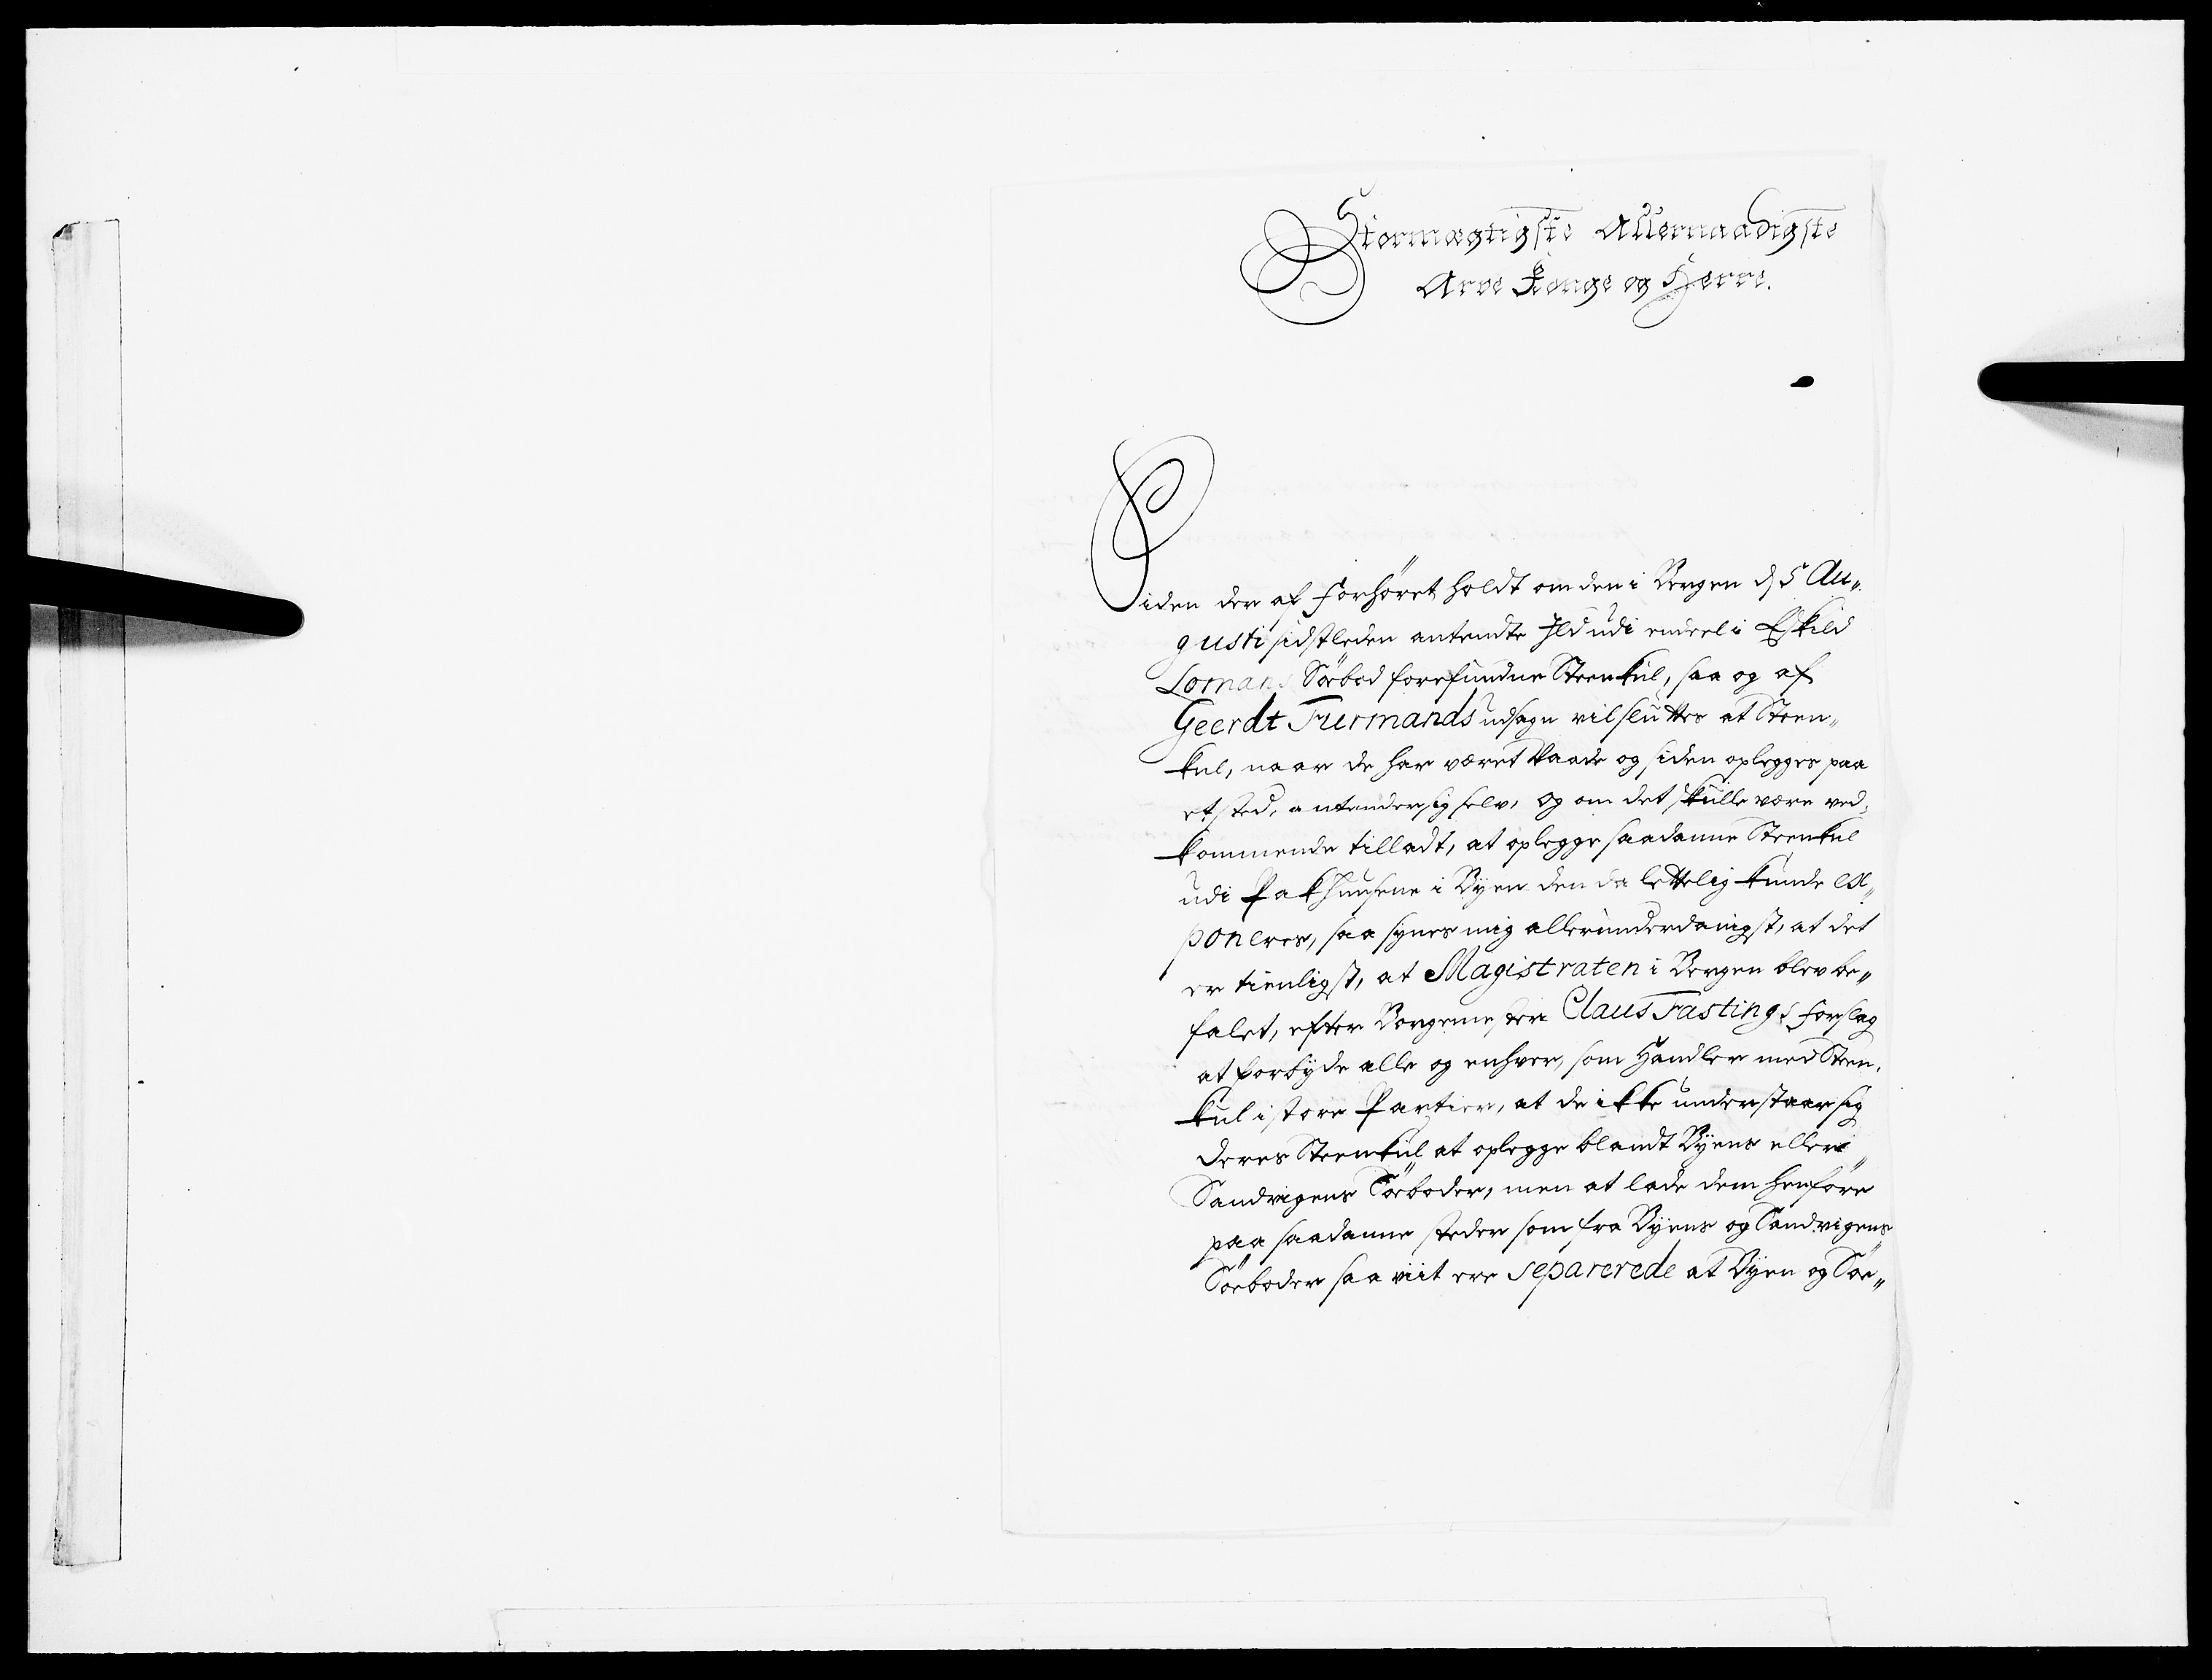 Stormægtigste Allernaadigste
Arve Konge og Herre.
Siden der af Forhöret holdt om den i Bergen d 5 Au„
gusti sidstleden antendte Ild udi endeel i Eskild
Lomans Söebod forefundne Steenkul, saa og af
Geerdt Furmands udsagn vil sluttes at Steen„
kul, naar de har været vaade og siden oplegges paa
et sted, antender sig selv, og om det skulle være ved„
kommende tilladt, at oplegge saadanne Steenkul
udi Pakhuusene i Byen den da lettelig kunde ex„
poneres, saa synes mig allerunderdanigst, at det
er tienligst, at Magistraten i Bergen blev be„
falet, efter Borgemester Claus Fastings forslag
at forbyde alle og enhver, som Handler med Steen„
kul i store Partier, at de ikke understaar sig
deres Steenkul at oplegge blandt Byens eller
Sandvigens Söeboder, men at lade dem henföre
paa saadanne steder som fra Byens og Sandvigens
Söeboder saa viit ere separerede at Byen og Söe„